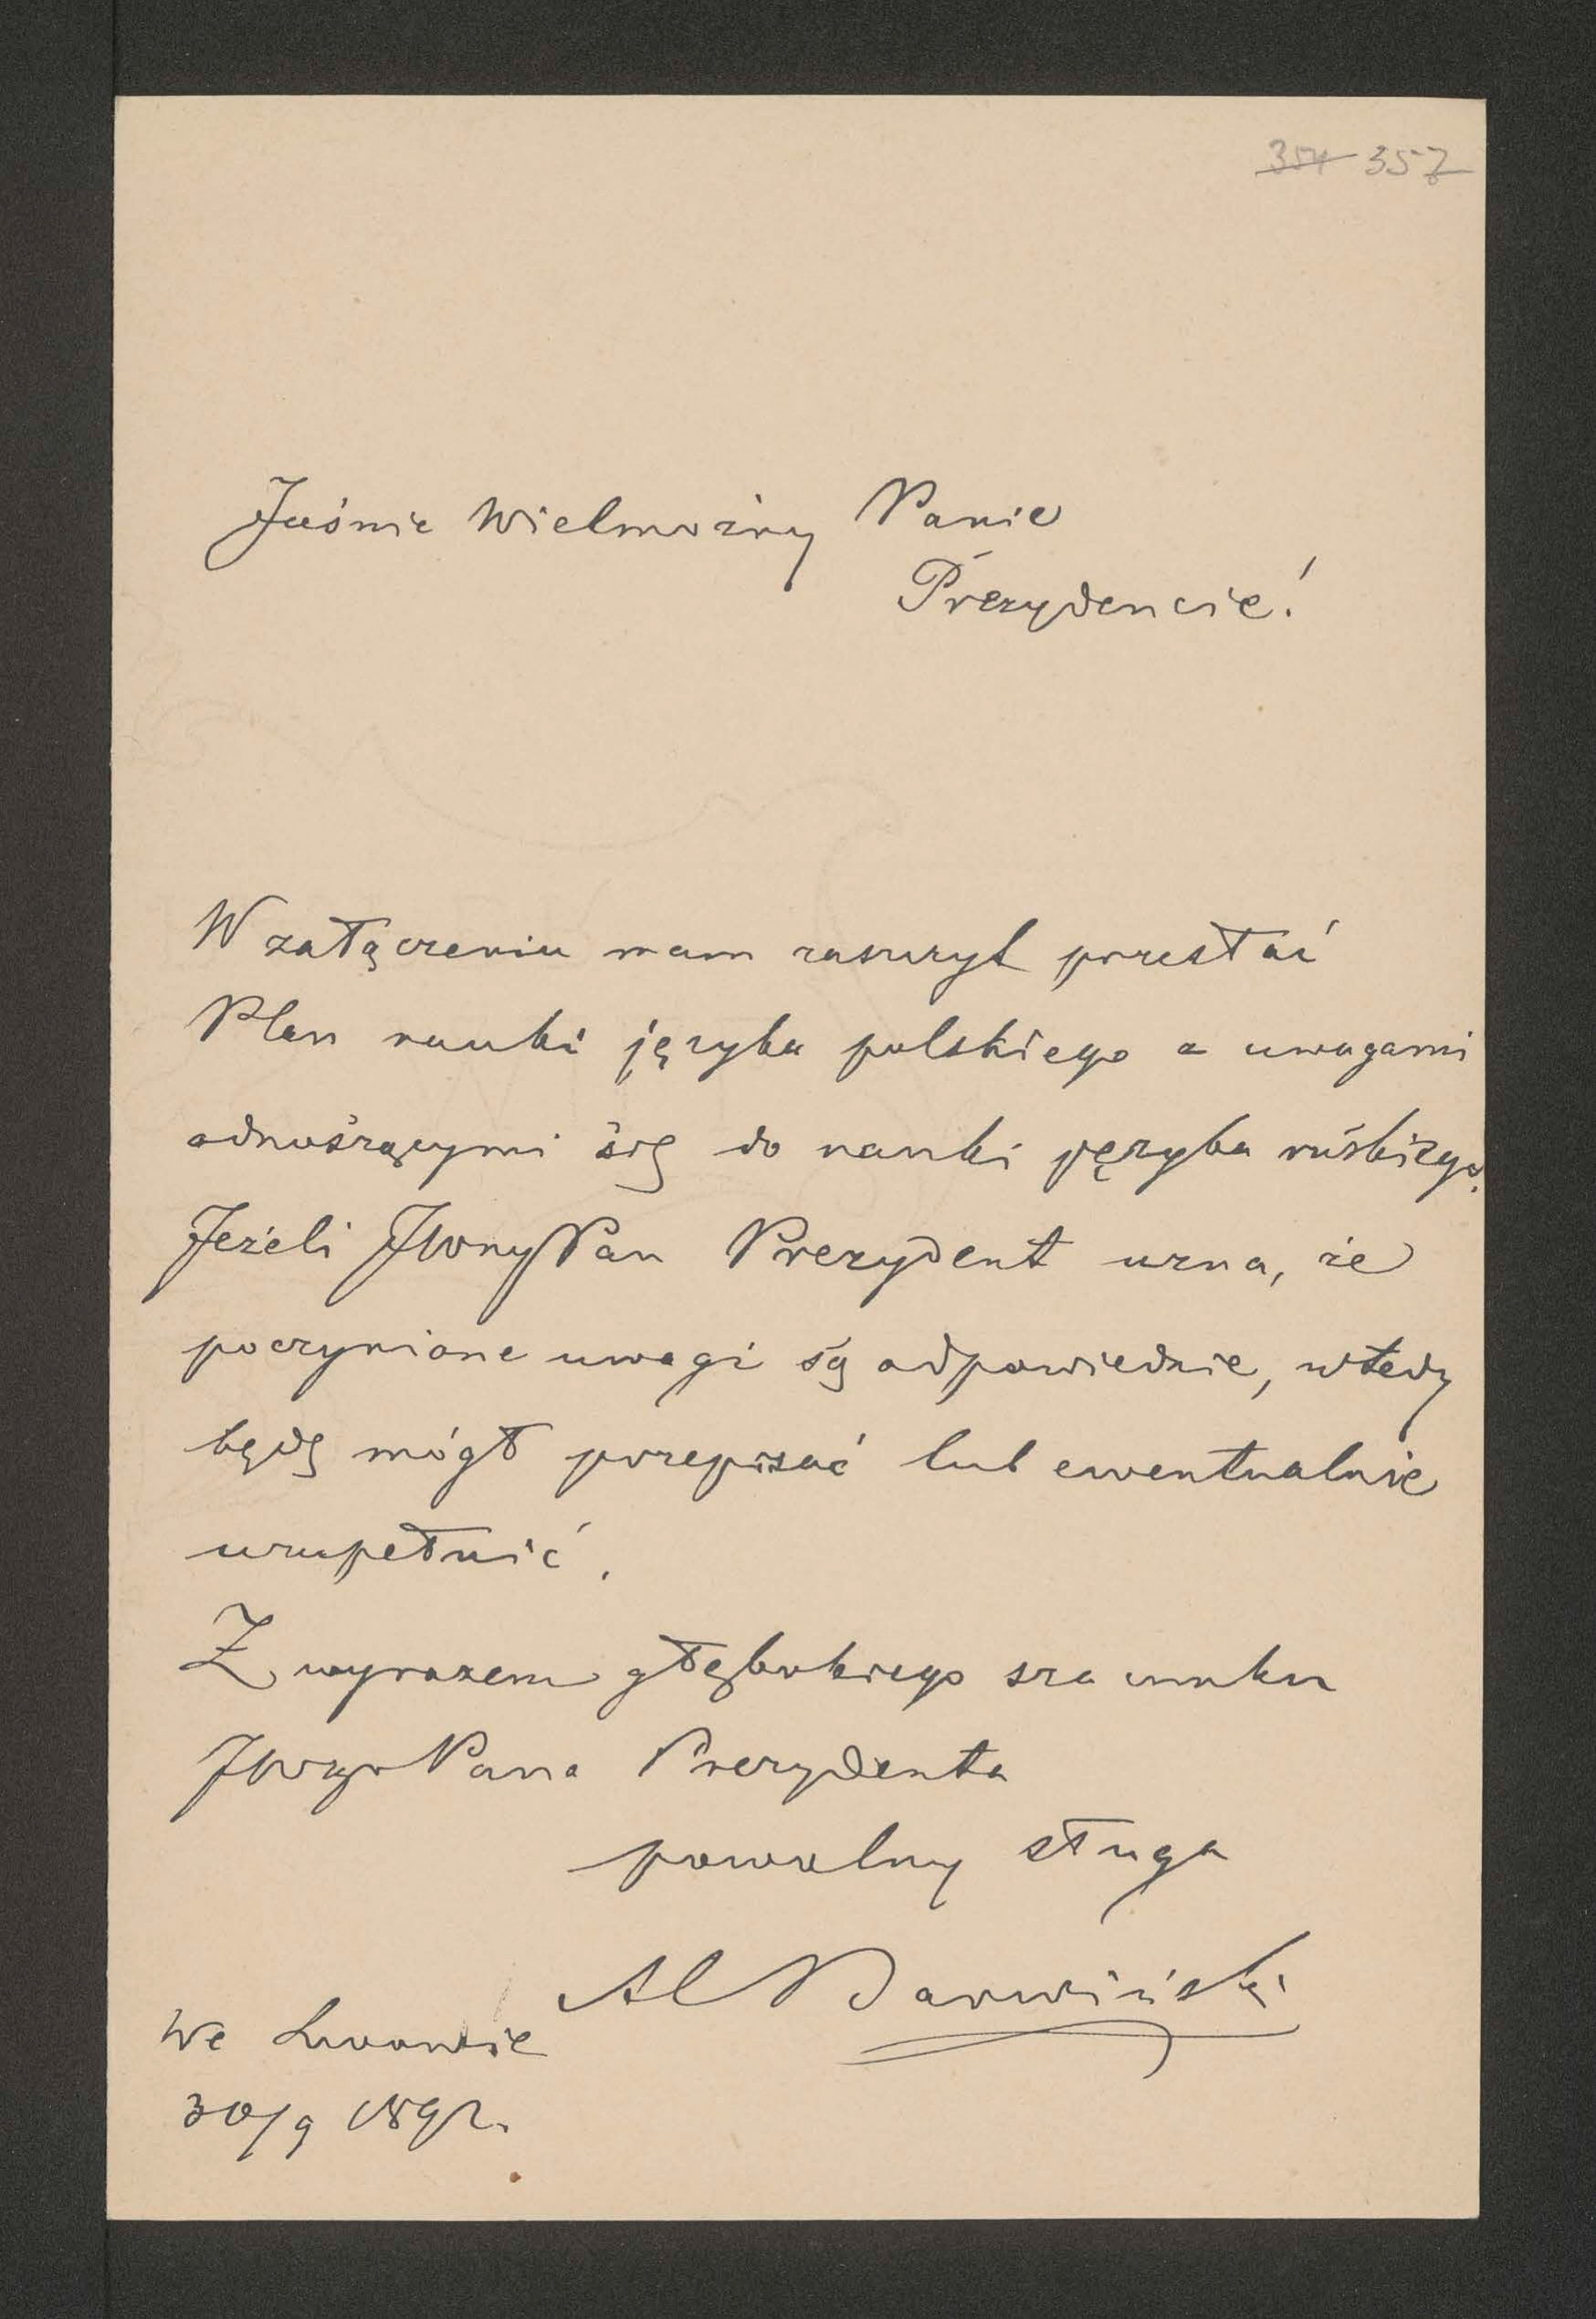 354 357
Jaśnie Wielmożny Panie
Prezydencie!
W załączeniu mam zaszczyt przesłać
Plan nauki języka polskiego z uwagami
odnoszącymi się do nauki języka ruskiego.
Jeżeli JWny Pan Prezydent uzna, że
poczynione uwagi są odpowiednie, wtedy
będę mógł przepisać lub ewentualnie
uzupełnić.
Z wyrazem głębokiego szacunku
JWgo Pana Prezydenta
powolny sługa
Al Barwiński
We Lwowie
30/9 1892.